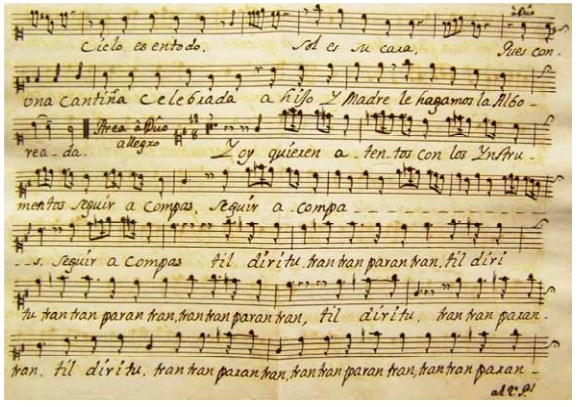 à Dúo
Cielo es en todo. Sol es su cara. Pues con-
una Cantiña Celebrada a hijo Y Madre le hagamos la Albo-
rea-da. Area à Dúo allegro Y oy quieren a-ten-tos con los Ynstru-
mentos seguir a compas, seguir a compa
s. seguir a compas til diritu, tran tran paran tran, til diri
tu tran tran paran tran, tran tran paran tran, til diritu, tran tran paran-
tran, til diritu, tran tran paran tran, tran tran paran tran, tran tran paran-